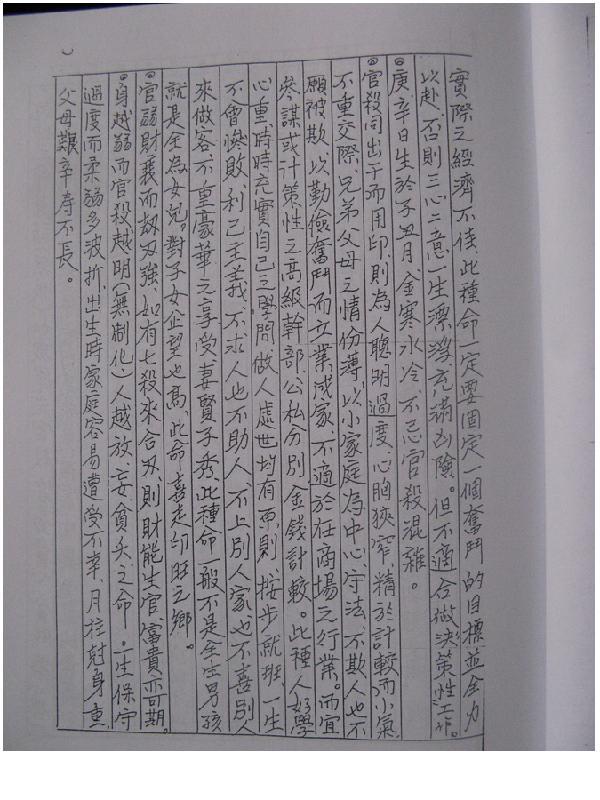 實際之經濟不佳、此種命一定要固定一個奮鬥的目標並全力
以赴、否則三心二意一生漂漂充滿凶險。但不適合做決策性工作。
庚辛日生於子丑月金寒水冷不忌官殺混雜。
官殺同出于而用印、則為人聰明過度、心胸狹窄、精於計較而小氣
不重交際、兄弟父母之情份薄、以小家庭為中心、守法、不欺人也不
願被欺、以勤儉奮鬥而立業成家、不適於在商場之行業。而宜
參謀或計策性之高級幹部、公私分別金錢計較。此種人好學
心重、時時充實自己之學問、做人處世均有原則、按步就班、一生
不會慘敗、利己主義、不求人也不助人、不上別人家也不喜別人
來做客、不望豪華之享受、妻賢子秀、此種命一般不是全生男孩
就是全為女兒。對子女企望也高、此命喜走印旺之鄉。
官弱財衰而劫刃強、如有七殺來合刃、則財能生官、富貴亦可期。
身越弱而官殺越明（無制化）人越放、妄貪夭之命、一生保守
過度而柔弱多波折、出生時家庭容易遭受不幸、月柱尅身重
父母艱辛壽不長。